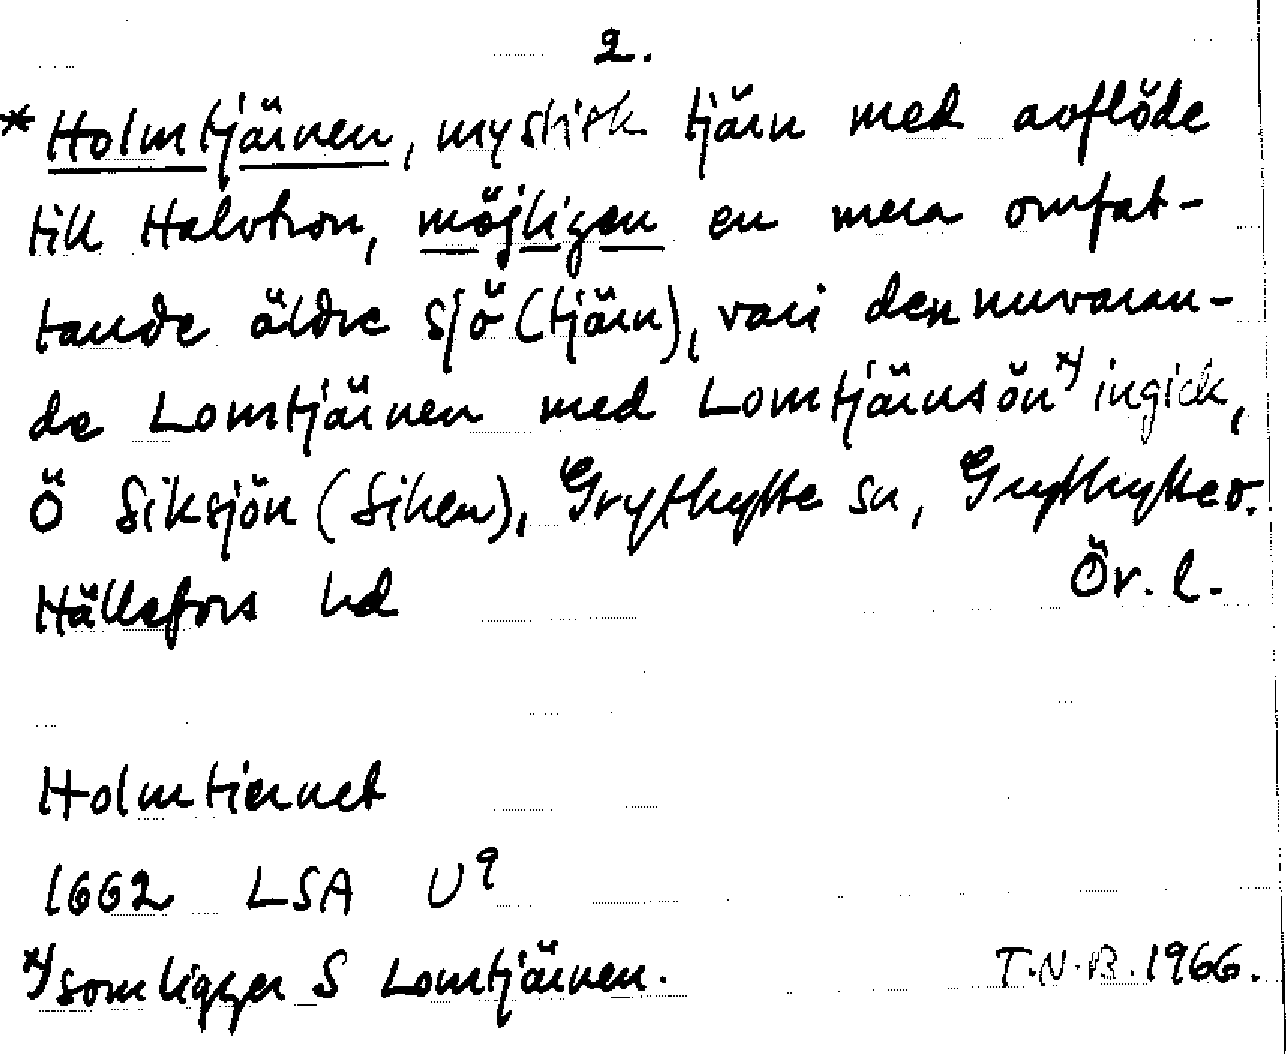 2.
* Holmtjärnen, mystisk tjärn med avflöde
till Halvtron, möjligen en mera omfat-
tande äldre sjö (tjärn), vari den nuvaran-
de Lomtjärnen med Lomtjärnsön x) ingick,
Ö Siksjön (Siken), Grythytte sn, Grythytte o.
Hällefors hd Ör. l.
Holmtiernet
1662 LSA U9
x) som ligger S Lomtjärnen. T.N.B. 1966.